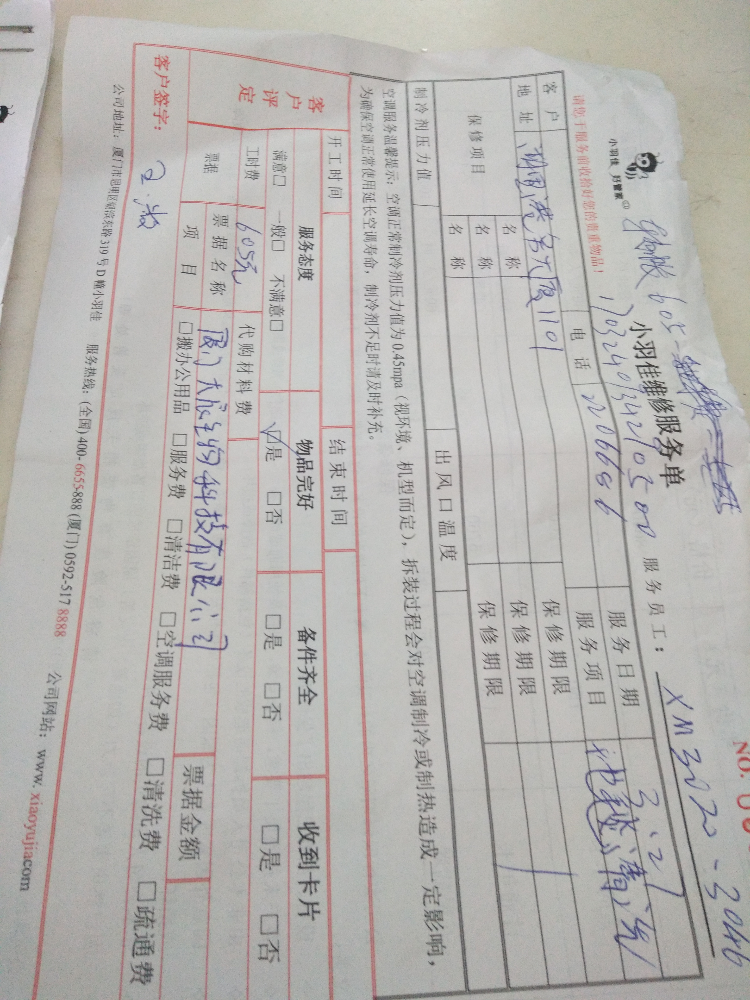 小羽佳 好管家
605
NO.
1703240134210500
小羽佳维修服务单
服务员工：XM3020-3046
请您于服务前收拾好您的贵重物品！
客户
电话
2206656
服务日期
3.21
地址
1101
服务项目
地毯清洗
保修项目
名称
保修期限
名称
保修期限
名称
保修期限
制冷剂压力值
出风口温度
空调服务温馨提示：空调正常制冷剂压力值为0.45mpa（视环境、机型而定），拆装过程会对空调制冷或制热造成一定影响，
为确保空调正常使用延长空调寿命，制冷剂不足时请及时补充。
开工时间
结束时间
客户评定
服务态度
物品完好
备件齐全
收到卡片
满意□ 一般□ 不满意□
☑是 □否
□是 □否
□是 □否
工时费
605元
代购材料费
票据
票据名称
厦门大辰生物科技有限公司
票据金额
项目
□搬办公用品 □服务费 □清洁费 □空调服务费 □清洗费 □疏通费
客户签字：
公司地址：厦门市思明区湖滨东路319号D幢小羽佳 服务热线：(全国)400-6655-888 (厦门)0592-517 8888 公司网站：www.xiaoyujia.com